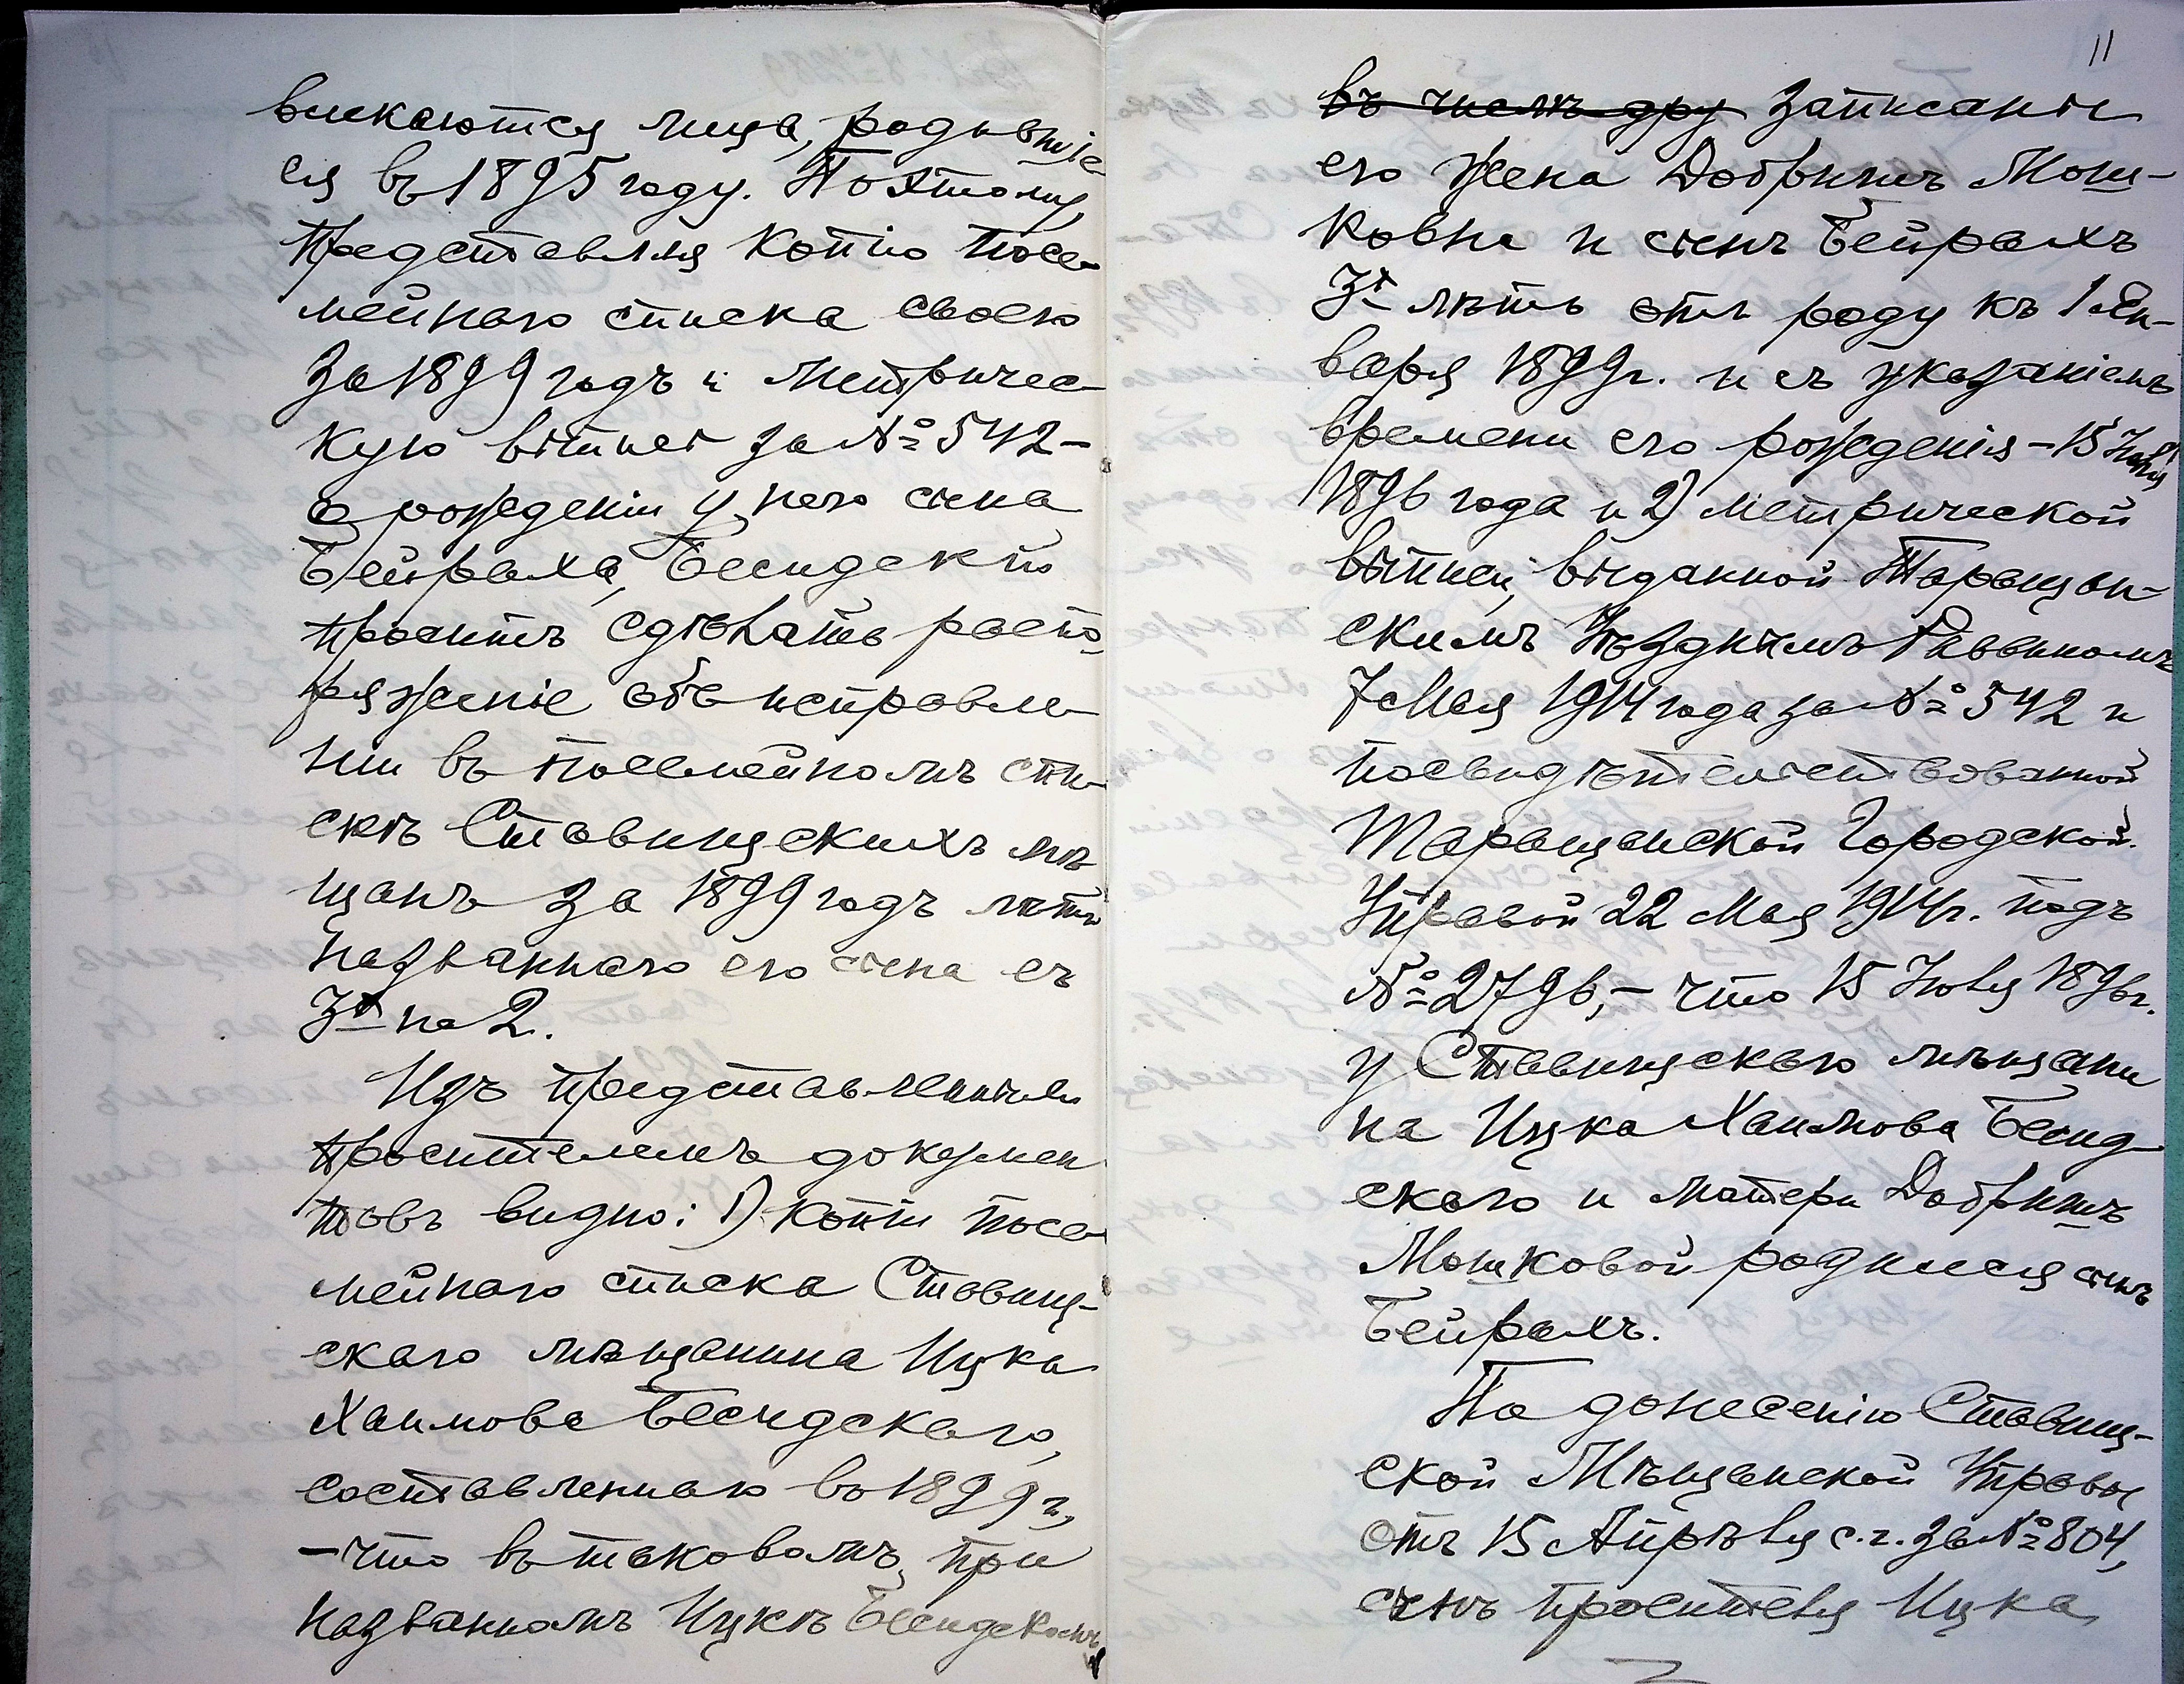 влекаются лица, родившіе
ся въ 1895 году. Поэтому,
представляя копію посе-
мейнаго списка своего
за 1899 годъ и метричес-
кую выпись за № 542 -
о рожденіи у него сына
Бейраха, Бесидскій
проситъ сдѣлать распо
ряженіе объ исправле-
ніи въ посемейномъ спи-
скѣ Ставищскихъ мѣ
щанъ за 1899 годъ лѣтъ
названнаго его сына съ
3х на 2.
Изъ представленныхъ
просителемъ докумен
товъ видно: 1) копіи посе-
мейнаго списка Ставищ-
скаго мѣщанина Ицка
Хаимова Бесидскаго,
составленнаго въ 1899 г.,
- что въ таковомъ, при
названномъ Ицкѣ Бесидскомъ,
11
въ числѣ дру записаны
его жена Добришъ Мош-
ковна и сынъ Бейрахъ
3х лѣтъ отъ роду къ 1 Ян-
варя 1899 г. и съ указаніемъ
времени его рожденія - 15 Іюля
1896 года и 2) метрической
выписи, выданной Таращан-
скимъ Уѣзднымъ Раввиномъ
7 Мая 1914 года за № 542 и
посвидѣтельствованной
Таращанской Городской
Управой 22 Мая 1914 г. подъ
№ 2796, - что 15 Іюля 1896 г.
у Ставищскаго мѣщани
на Ицка Хаимова Бесид-
скаго и матери Добришъ
Мошковой родился сынъ
Бейрахъ.
По донесенію Ставищ-
ской Мѣщанской Управы
отъ 15 Апрѣля с.г. за № 804,
сынъ просителя Ицка